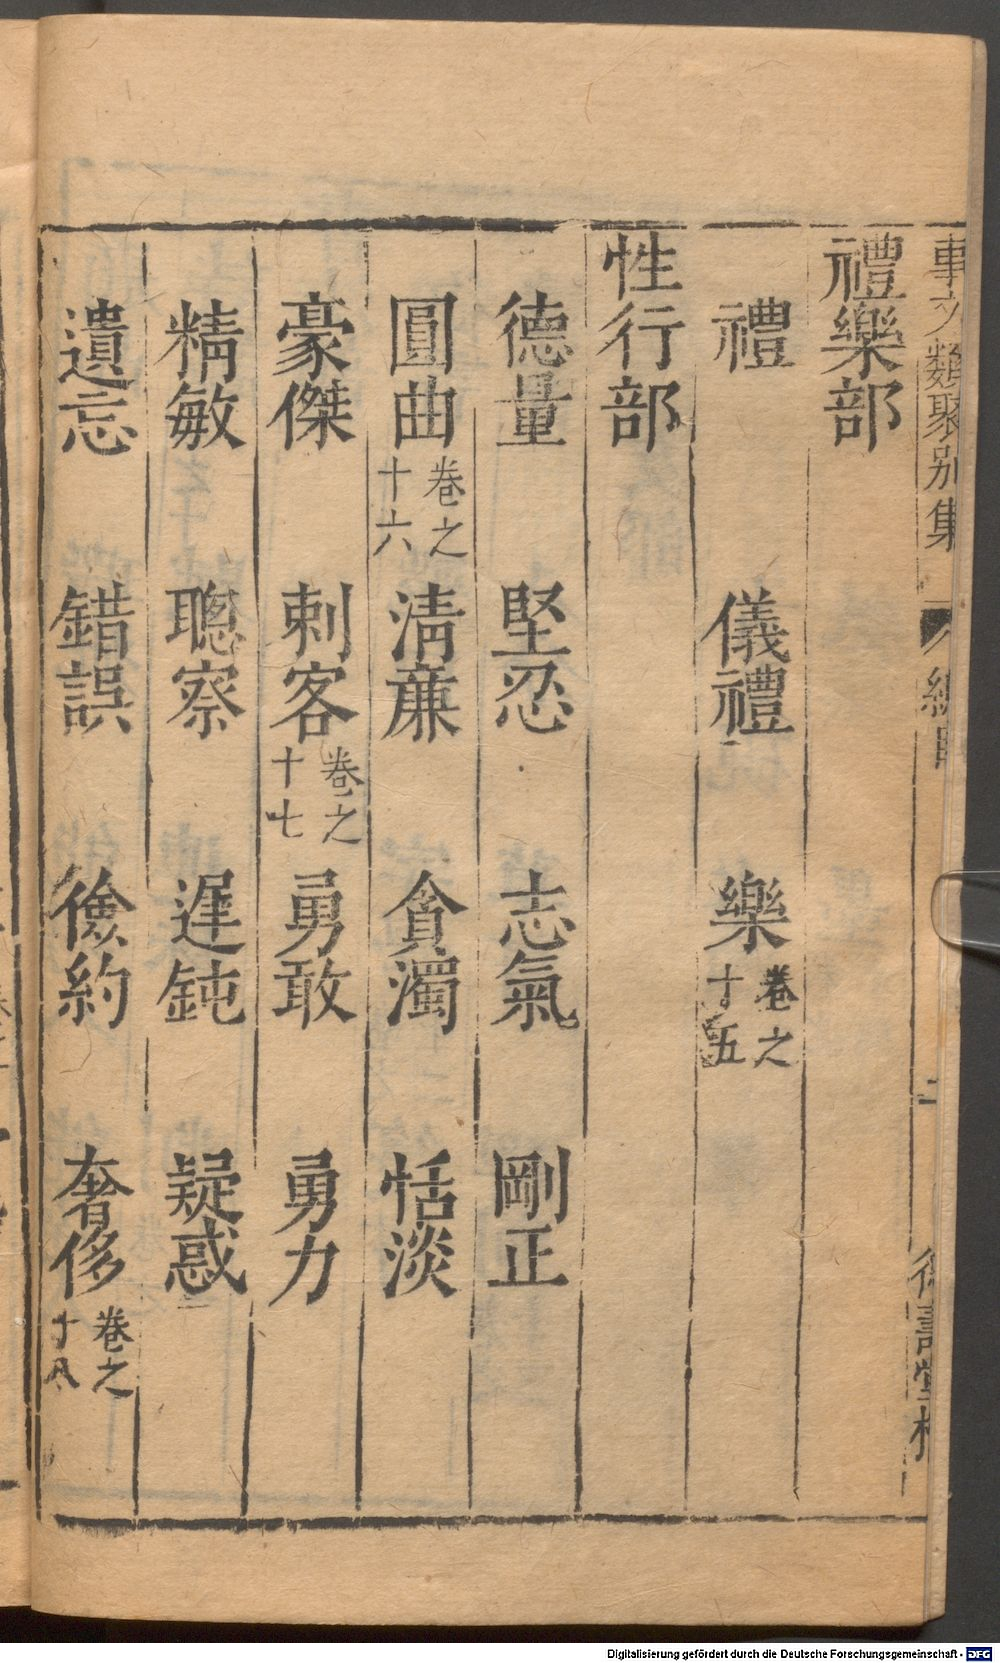 事文類聚別集 總目 二 德壽堂梓
禮樂部
禮 儀禮 樂 卷之十五
性行部
德量 堅忍 志氣 剛正
圓曲 卷之十六 清廉 貪濁 恬淡
豪傑 刺客 卷之十七 勇敢 勇力
精敏 聰察 遲鈍 疑惑
遺忘 錯誤 儉約 奢侈 卷之十八
Digitalisierung gefördert durch die Deutsche Forschungsgemeinschaft - DFG